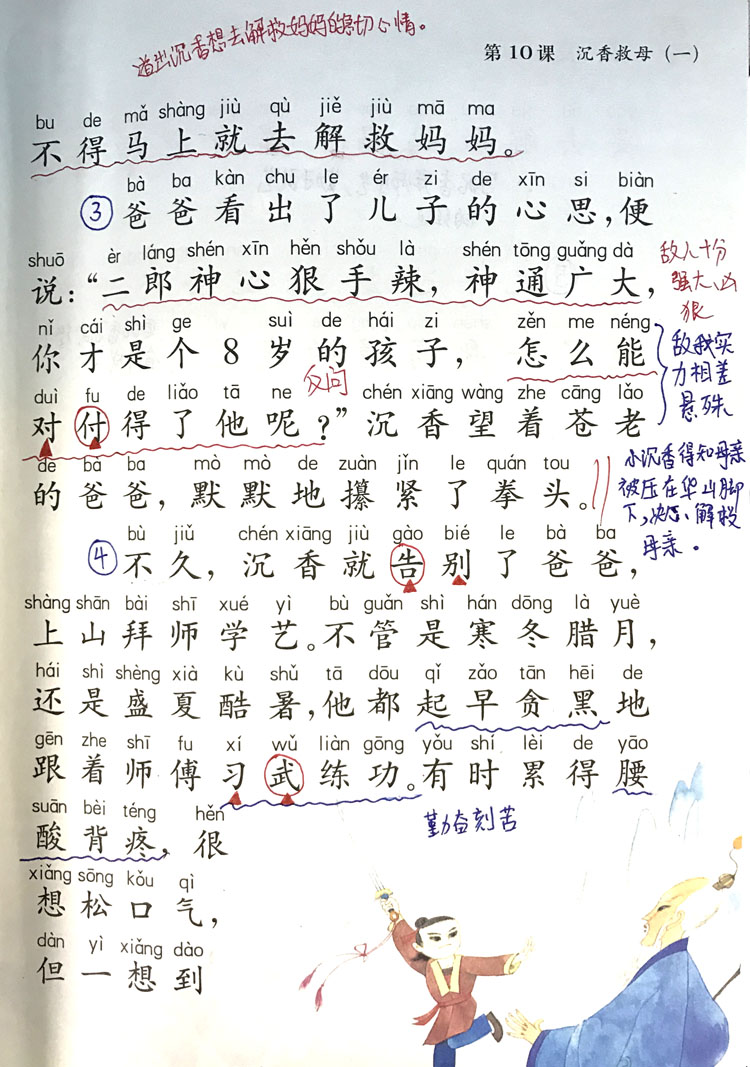 道出沉香想去解救妈妈的急切心情。
第10课 沉香救母（一）
bu de mǎ shàng jiù qù jiě jiù mā ma
不得马上就去解救妈妈。
bà ba kàn chu le ér zi de xīn si biàn
③ 爸爸看出了儿子的心思,便
shuō èr láng shén xīn hěn shǒu là shén tōng guǎng dà
说:“二郎神心狠手辣,神通广大,
敌人十分
强大、凶
狠
nǐ cái shì ge suì de hái zi zěn me néng
你才是个8岁的孩子,怎么能
敌我实
力相差
悬殊
duì fu de liǎo tā ne chén xiāng wàng zhe cāng lǎo
反问
对付得了他呢?”沉香望着苍老
de bà ba mò mò de zuàn jǐn le quán tou
的爸爸,默默地攥紧了拳头。
小沉香得知母亲
被压在华山脚
下,决心解救
母亲。
bù jiǔ chén xiāng jiù gào bié le bà ba
④ 不久,沉香就告别了爸爸,
shàng shān bài shī xué yì bù guǎn shì hán dōng là yuè
上山拜师学艺。不管是寒冬腊月,
hái shì shèng xià kù shǔ tā dōu qǐ zǎo tān hēi de
还是盛夏酷暑,他都起早贪黑地
gēn zhe shī fu xí wǔ liàn gōng yǒu shí lèi de yāo
跟着师傅习武练功。有时累得腰
勤奋刻苦
suān bèi téng hěn
酸背疼,很
xiǎng sōng kǒu qì
想松口气,
dàn yì xiǎng dào
但一想到